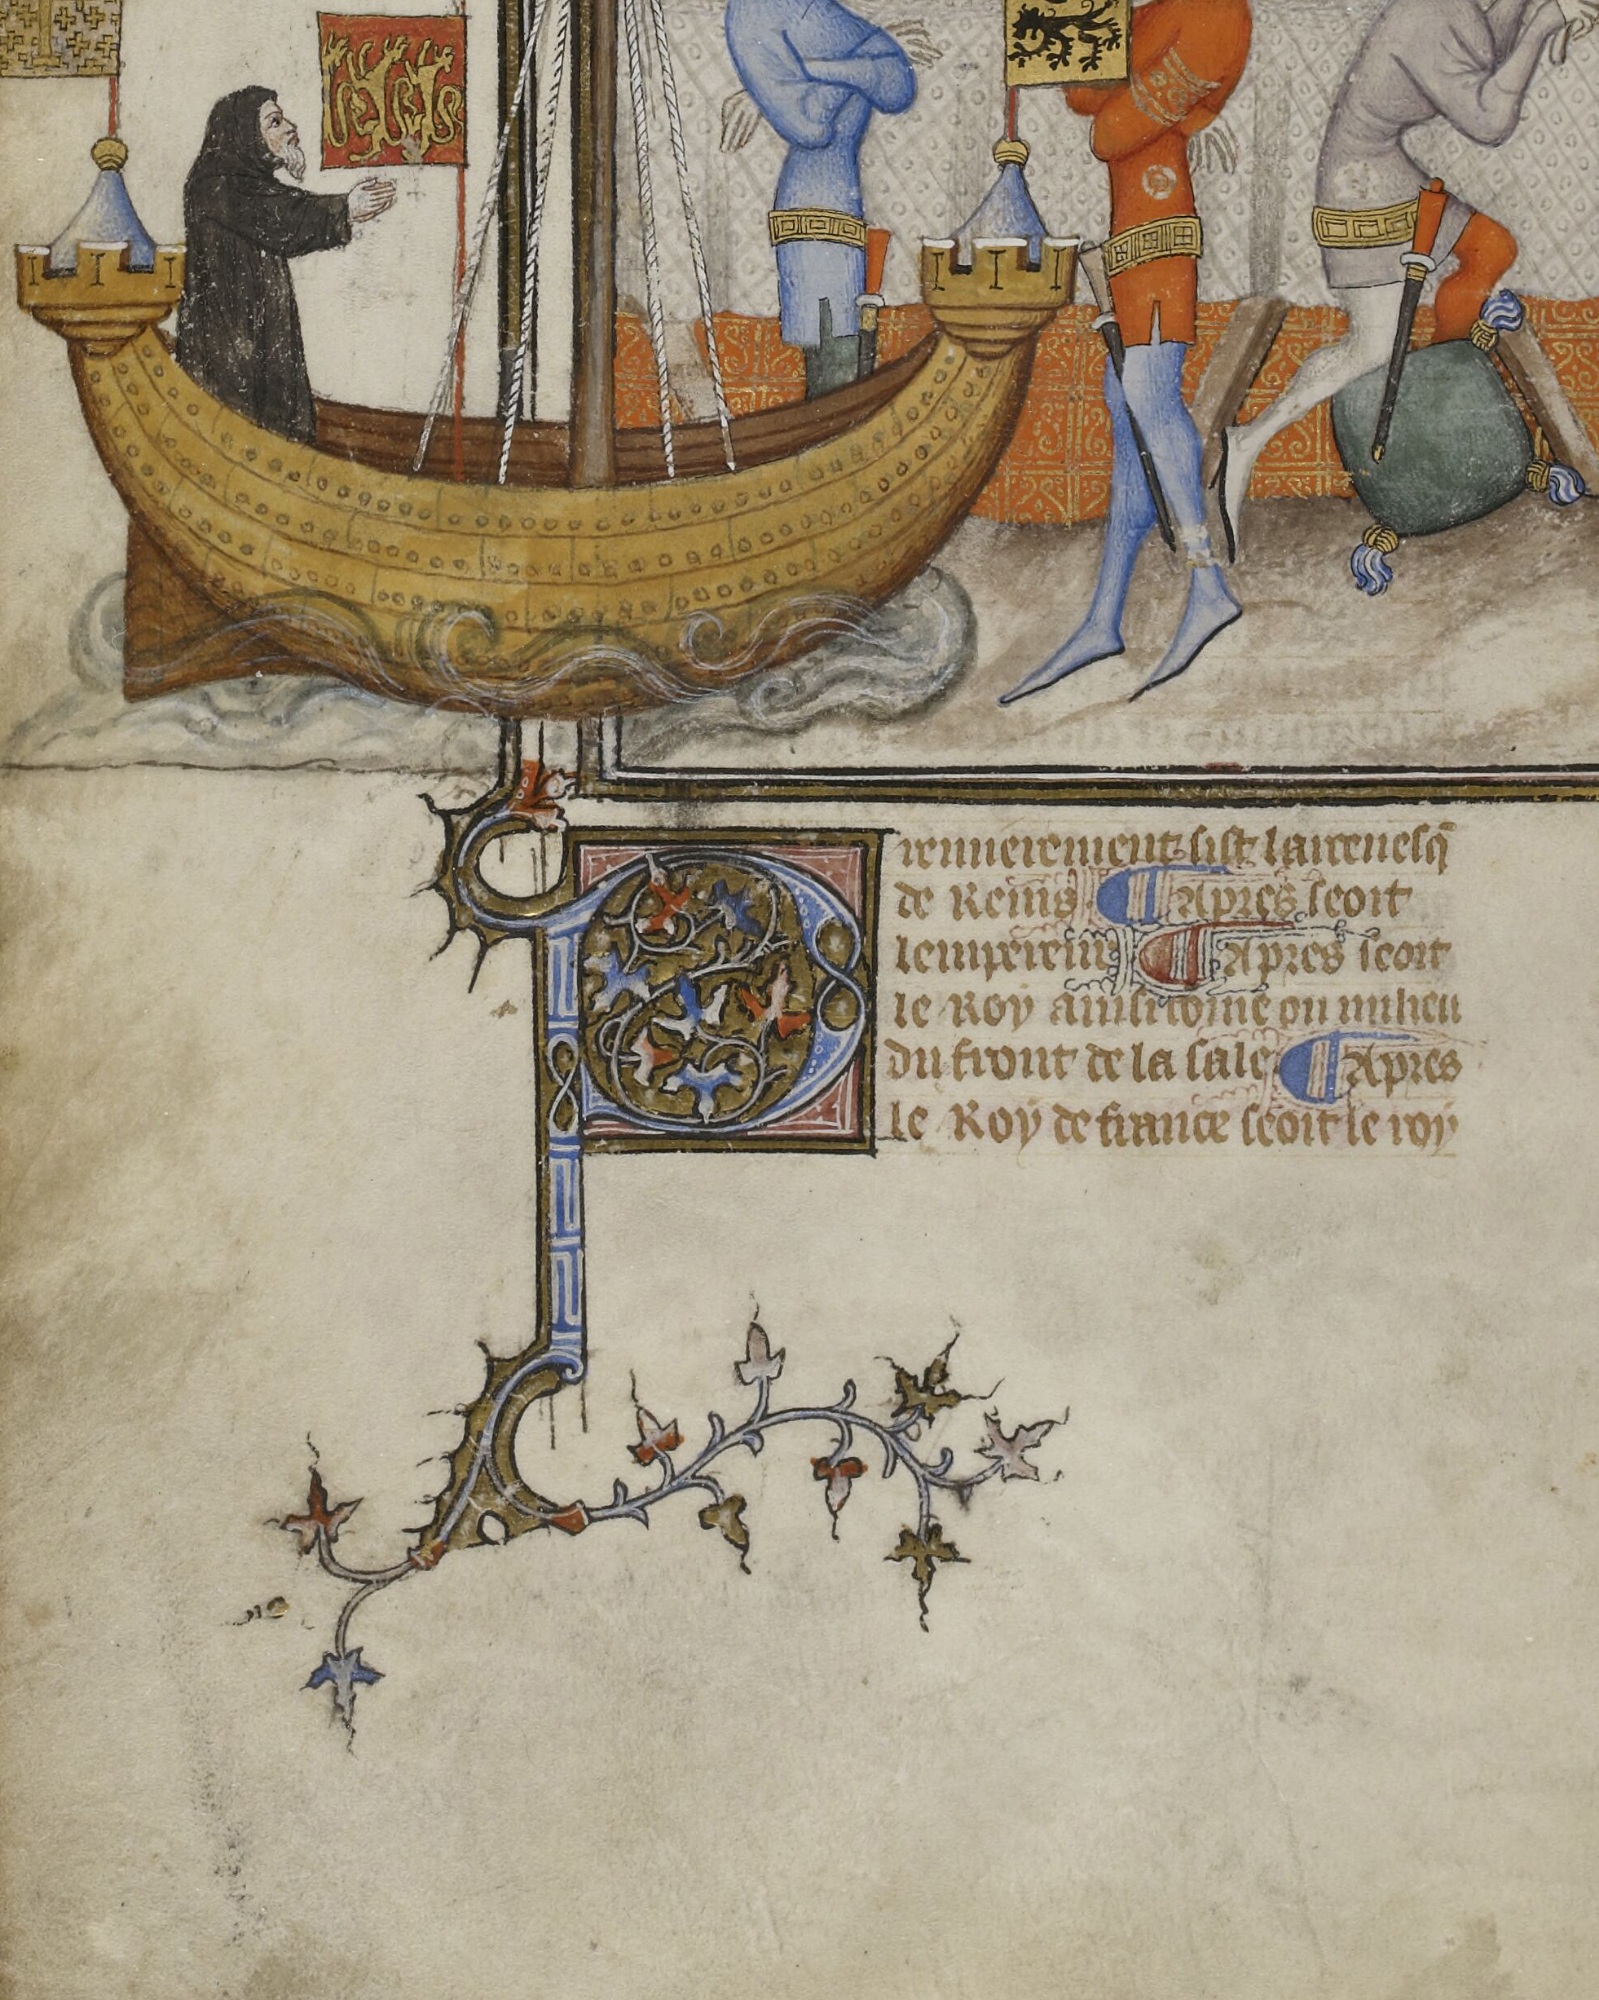 Premierement sist larcevesq̃
de Reins ¶ Apres seoit
lempereur ¶ Apres seoit
le Roy ainsi come ou milieu
du front de la sale ¶ Apres
le Roy de france seoit le roy